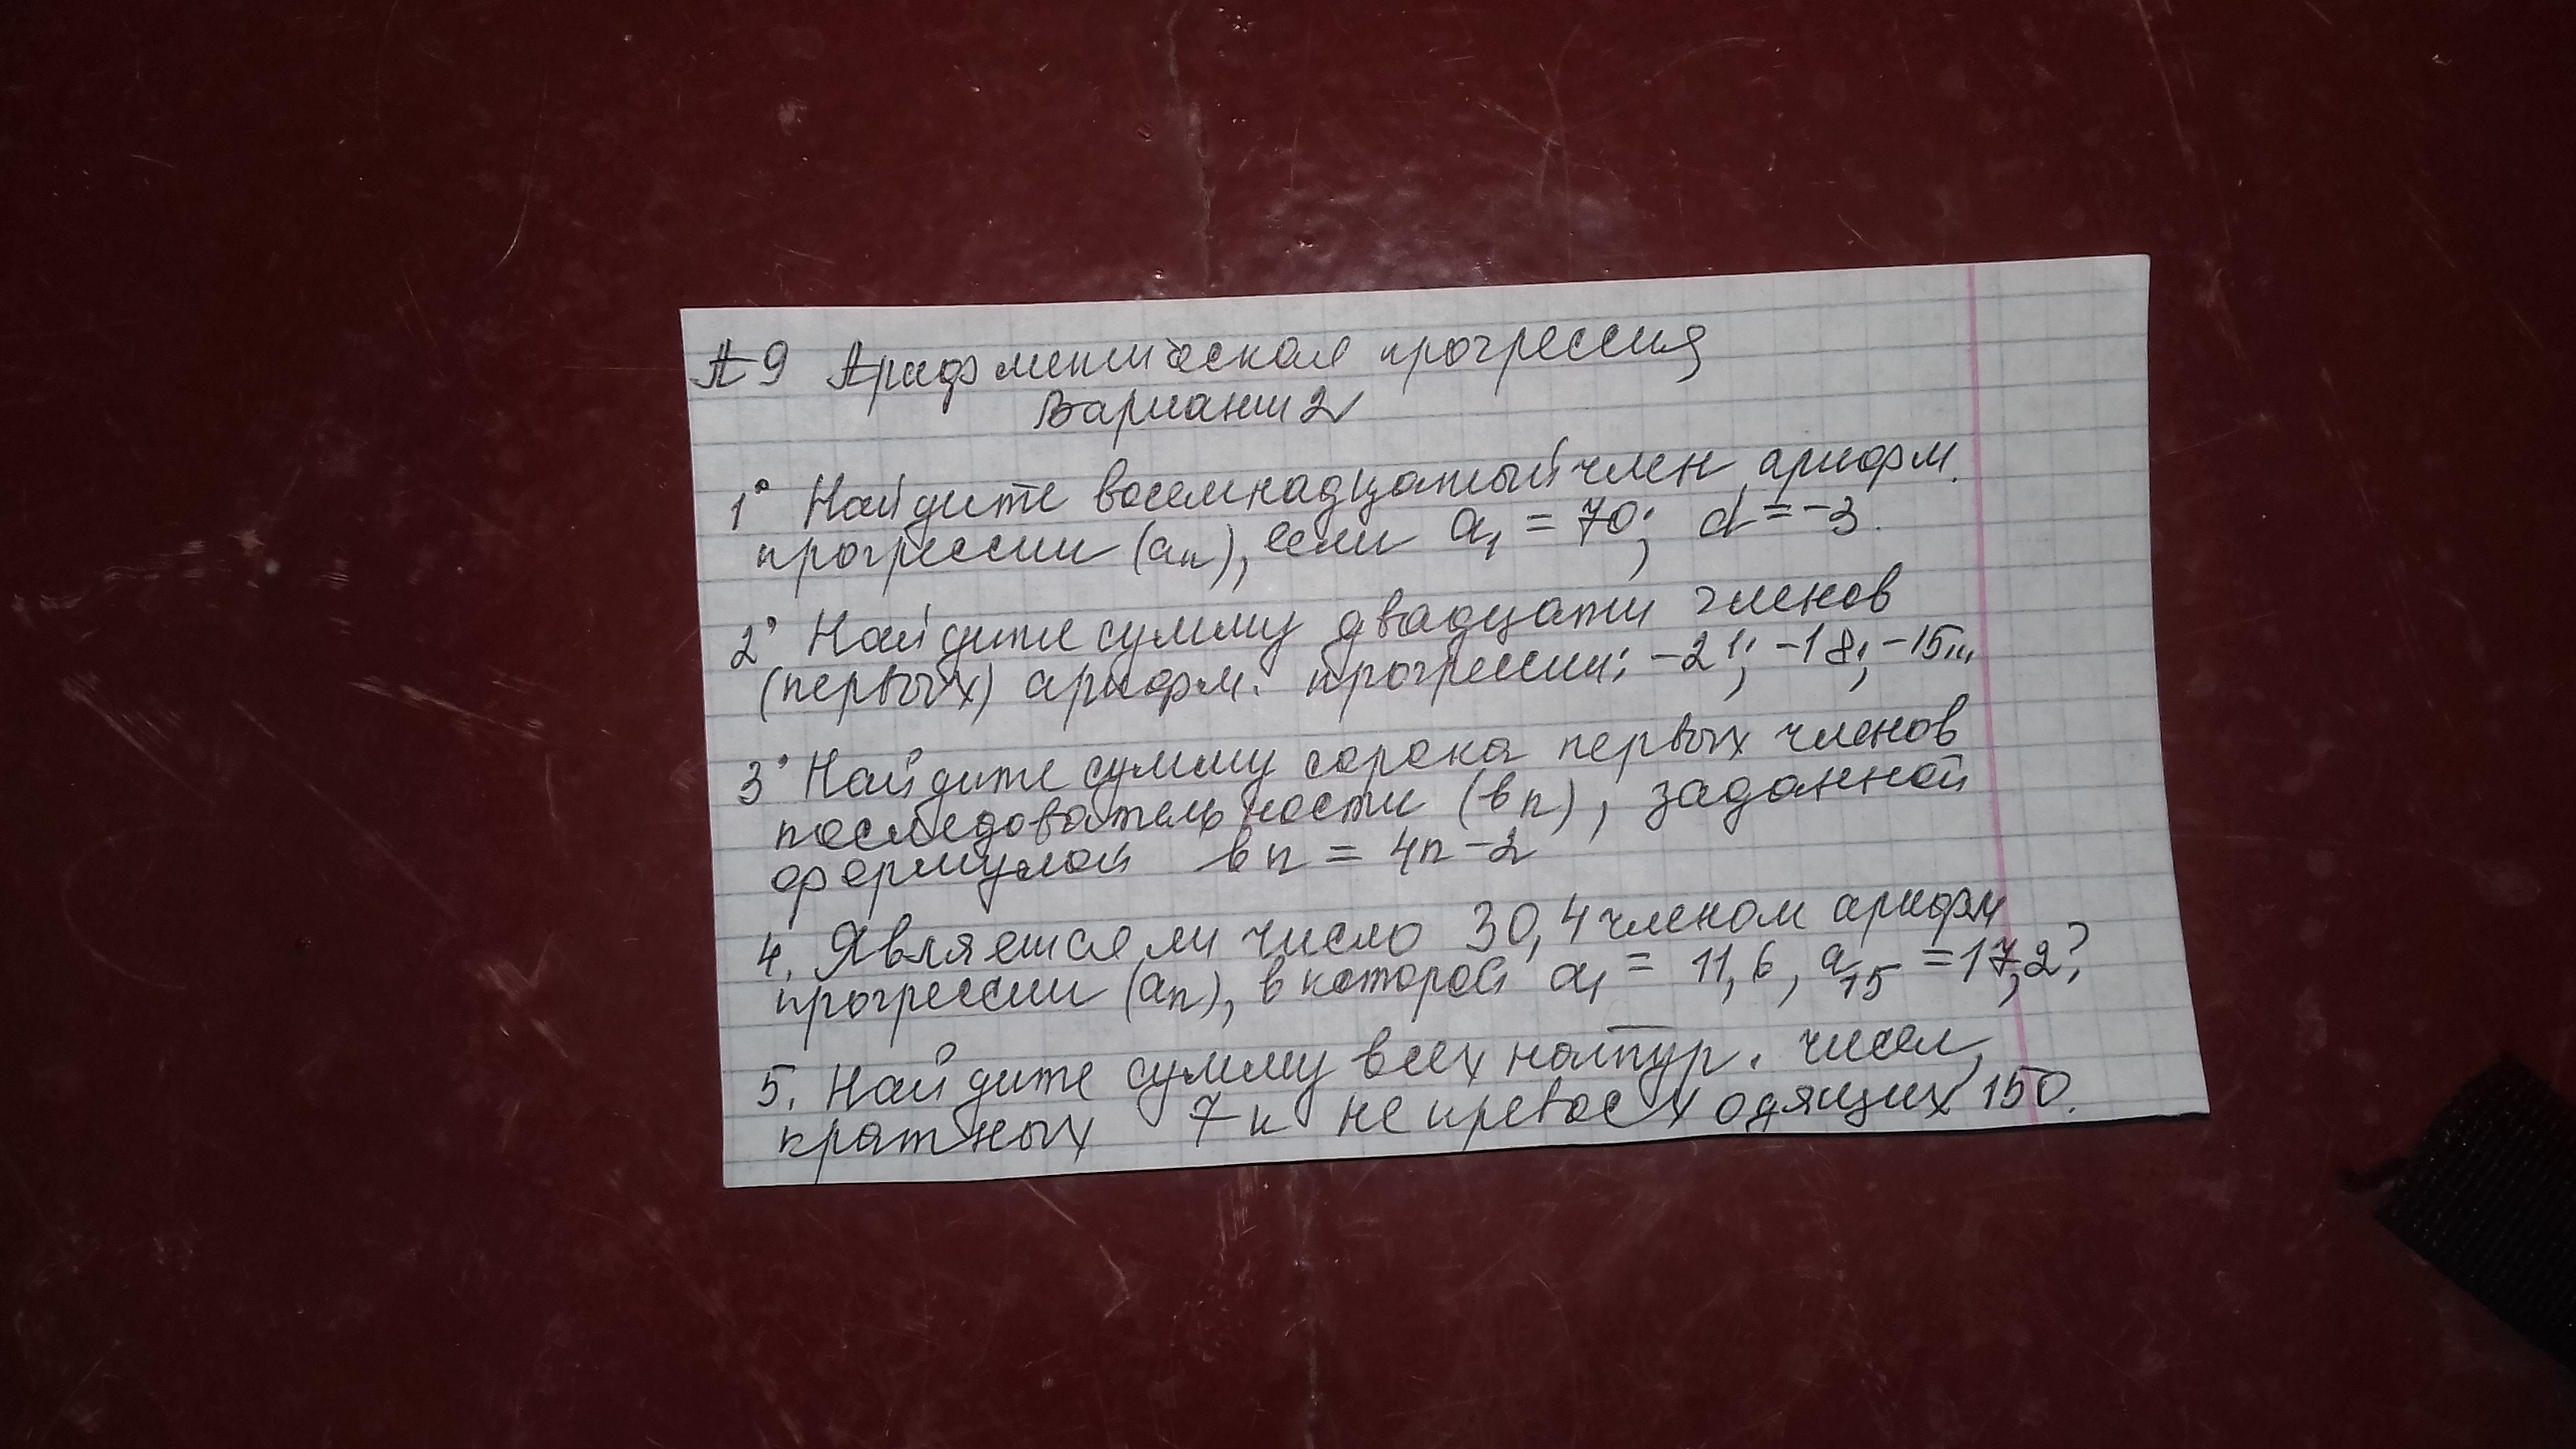 А-9 Арифметическая прогрессия
Вариант 2
1° Найдите восемнадцатый член арифм.
прогрессии (an), если a1 = 70; d = -3.
2° Найдите сумму двадцати членов
(первых) арифм. прогрессии: -21; -18; -15...
3° Найдите сумму сорока первых членов
последовательности (вn), заданной
формулой вn = 4n - 2
4. Является ли число 30,4 членом арифм
прогрессии (an), в которой a1 = 11,6, a15 = 17,2?
5. Найдите сумму всех натур. чисел,
кратных 7 и не превосходящих 150.